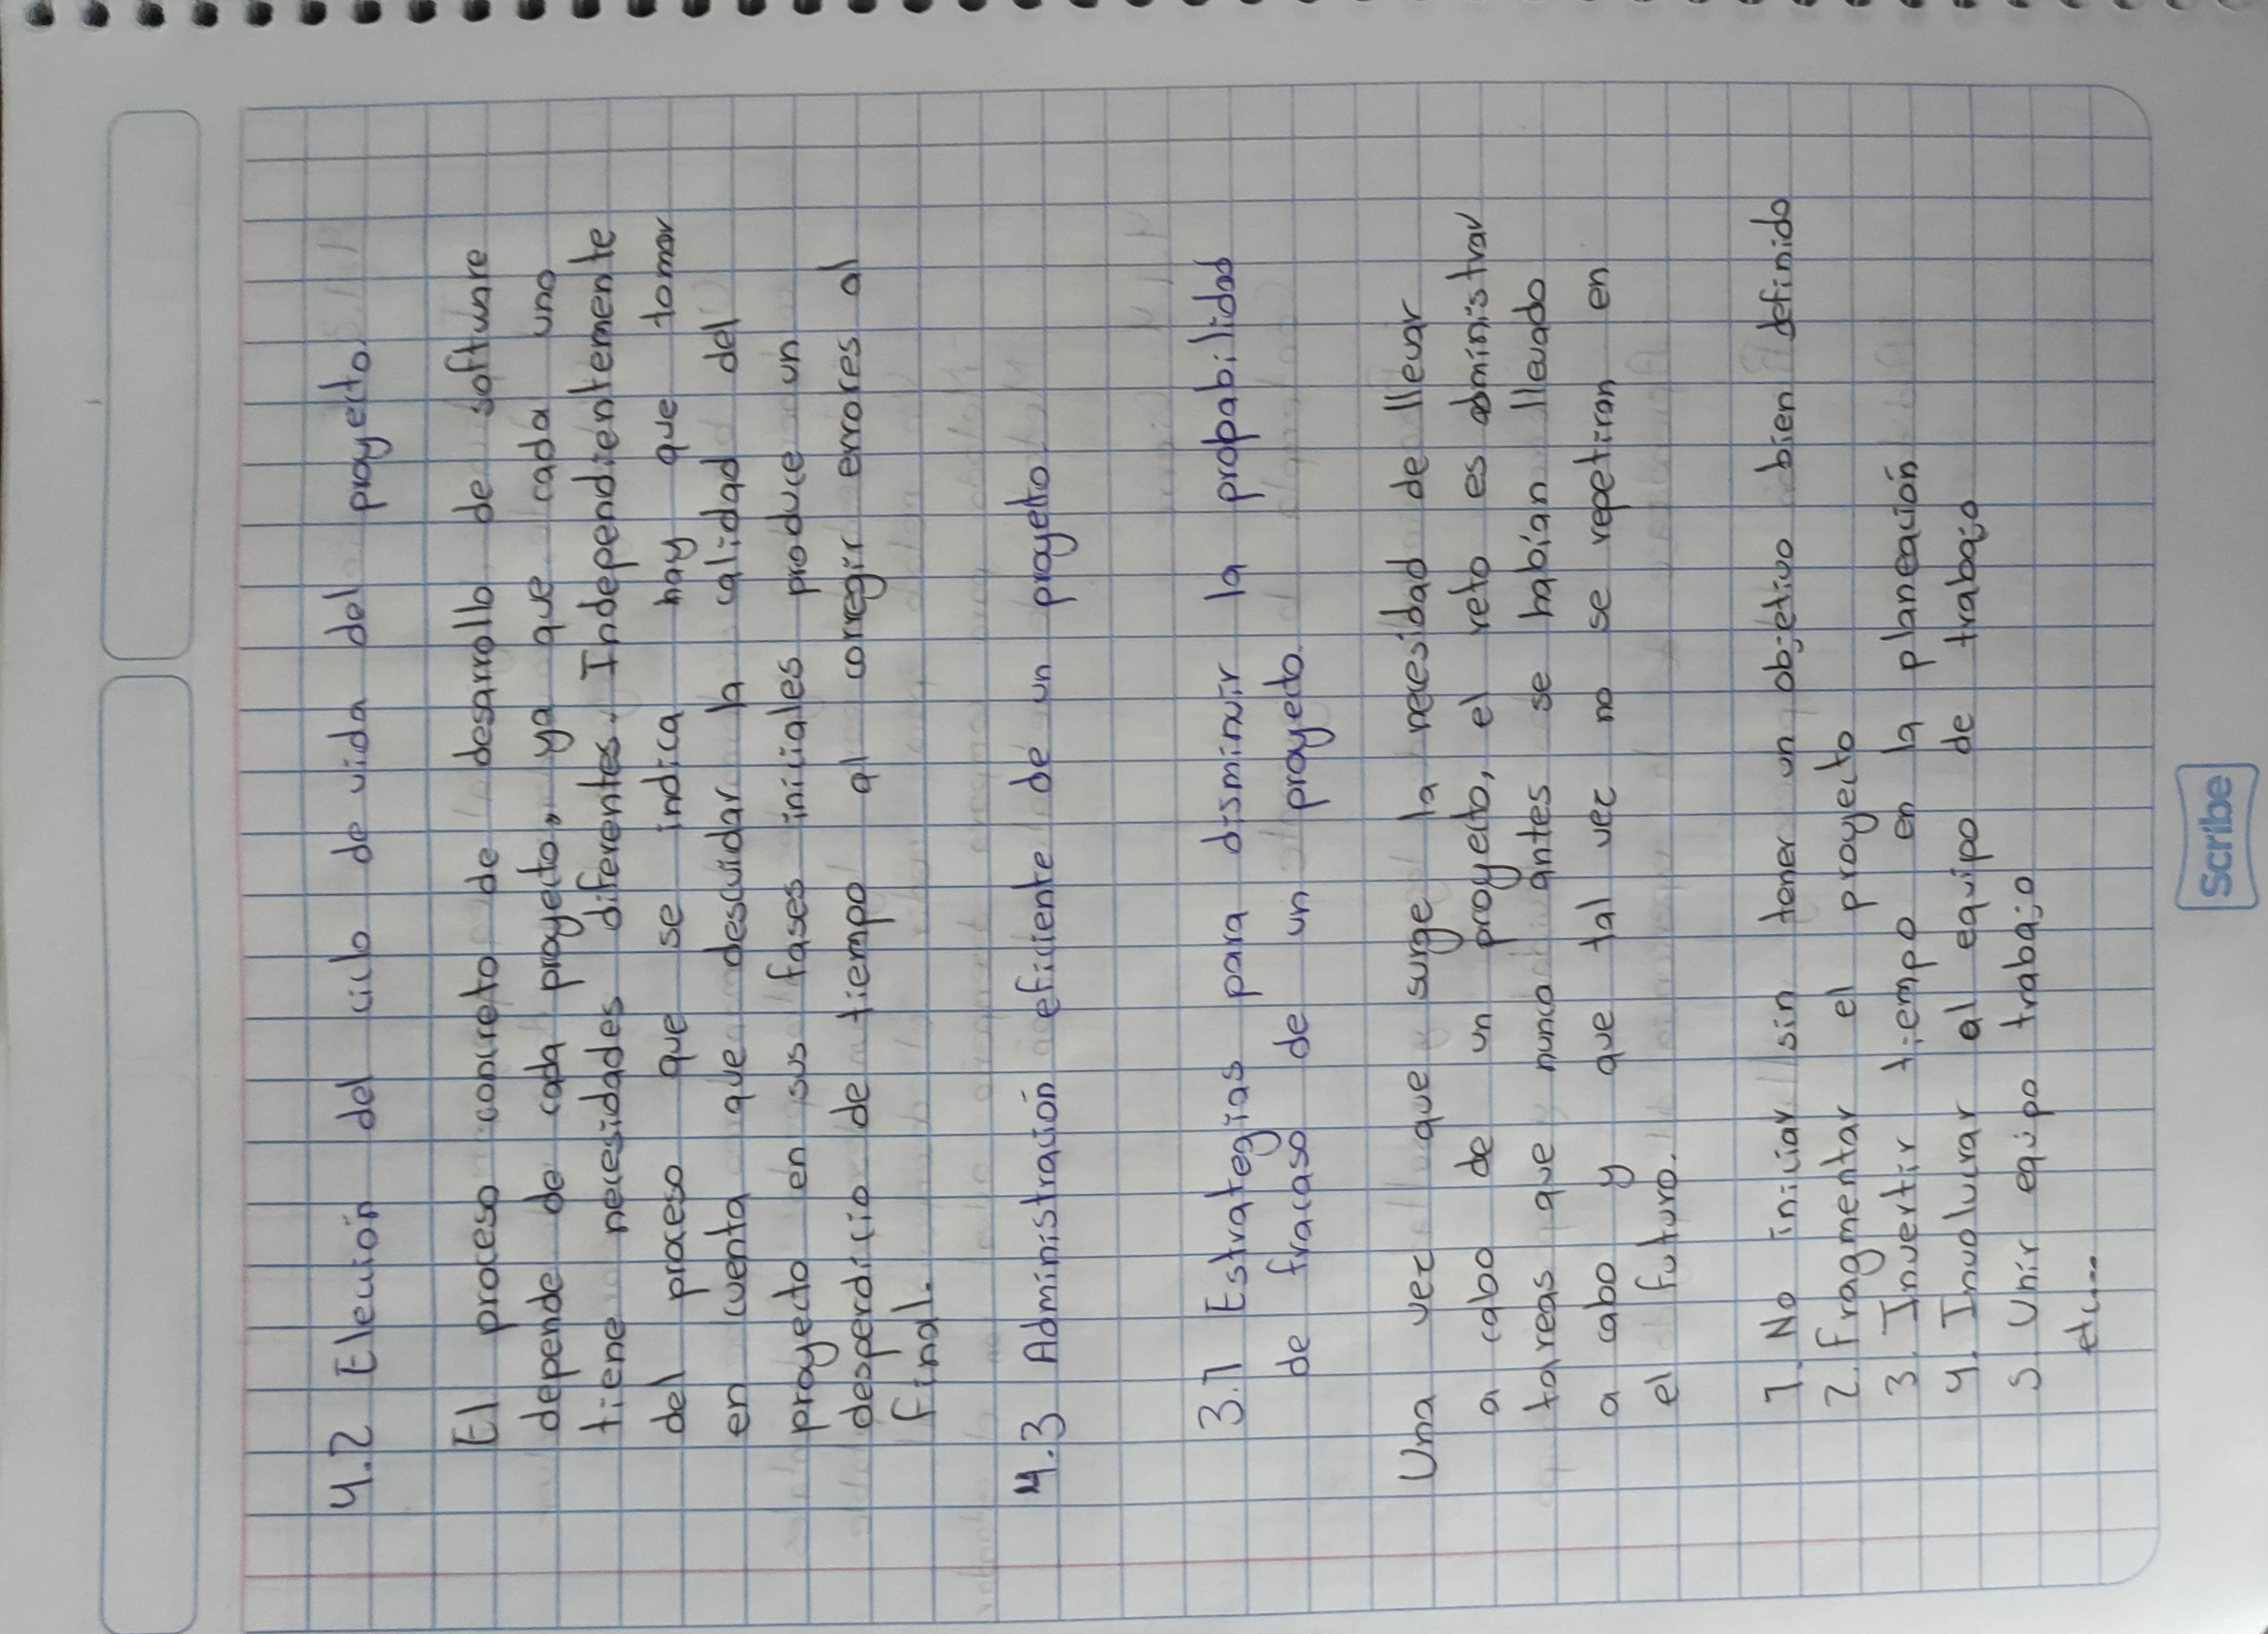 4.2 Elección del ciclo de vida del proyecto.
El proceso concreto de desarrollo de software
depende de cada proyecto, ya que cada uno
tiene necesidades diferentes. Independientemente
del proceso que se indica hay que tomar
en cuenta que descuidar la calidad del
proyecto en sus fases iniciales produce un
desperdicio de tiempo al corregir errores al
final.
4.3 Administración eficiente de un proyecto
3.1 Estrategias para disminuir la probabilidad
de fracaso de un proyecto.
Una vez que surge la necesidad de llevar
a cabo de un proyecto, el reto es administrar
tareas que nunca antes se habían llevado
a cabo y que tal vez no se repetiran en
el futuro.
1. No iniciar sin tener un objetivo bien definido
2. Fragmentar el proyecto
3. Invertir tiempo en la planeación
4. Involucrar al equipo de trabajo
5 Unir equipo trabajo
etc...
Scribe